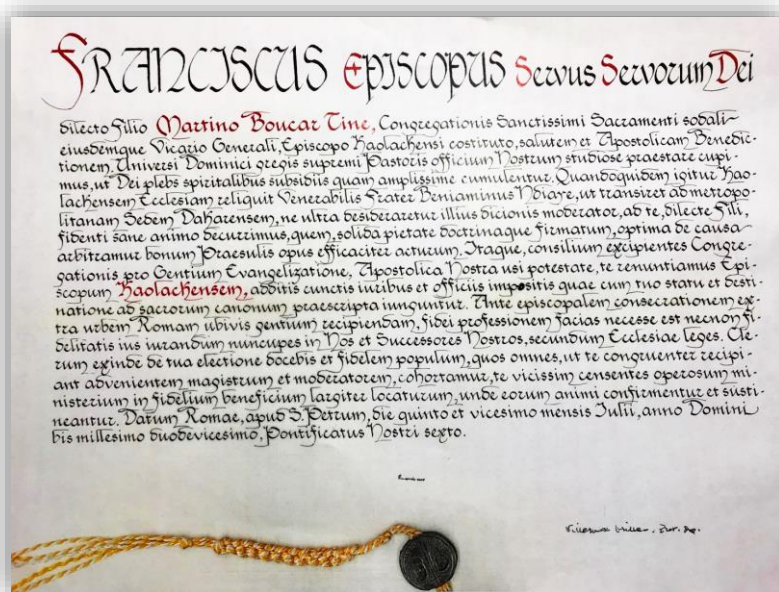 FRANCISCUS EPISCOPUS Servus Servorum Dei
dilecto Filio Martino Boucar Tine, Congregationis Sanctissimi Sacramenti sodali
eiusdemque Vicario Generali, Episcopo Kaolackensi costituto, salutem et Apostolicam Benedic-
tionem. Universi Dominici gregis supremi Pastoris officium Nostrum studiose praestare cupi-
mus, ut Dei plebs spiritalibus subsidiis quam amplissime cumulentur. Quandoquidem igitur Kao-
lackensem Ecclesiam reliquit Venerabilis Frater Beniaminus Ndiaye, ut transiret ad metropo-
litanam Sedem Dakarensem, ne ultra desideraretur illius dicionis moderator, ad te, dilecte Fili,
fidenti sane animo decurrimus, quem, solida pietate doctrinaque firmatum, optima de causa
arbitramur bonum Praesulis opus efficaciter acturum. Itaque, consilium excipientes Congre-
gationis pro Gentium Evangelizatione, Apostolica Nostra usi potestate, te renuntiamus Epi-
scopum Kaolackensem, additis cunctis iuribus et officiis impositis quae cum tuo statu et desti-
natione ad sacrorum canonum praescripta iunguntur. Ante episcopalem consecrationem ex-
tra urbem Romam ubivis gentium recipiendam, fidei professionem facias necesse est necnon fi-
delitatis ius iurandum nuncupes in Nos et Successores Nostros, secundum Ecclesiae leges. Cle-
rum exinde de tua electione docebis et fidelem populum, quos omnes, ut te congruenter recipi-
ant advenientem magistrum et moderatorem, cohortamur, te vicissim censentes operosum mi-
nisterium in fidelium beneficium largiter locaturum, unde eorum animi confirmentur et susti-
neantur. Datum Romae, apud S. Petrum, die quinto et vicesimo mensis Iulii, anno Domini
bis millesimo duodevicesimo, Pontificatus Nostri sexto.